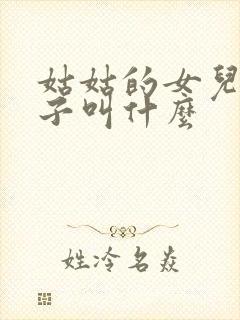 姑姑的女兒
子叫什麼
姓冷名焱